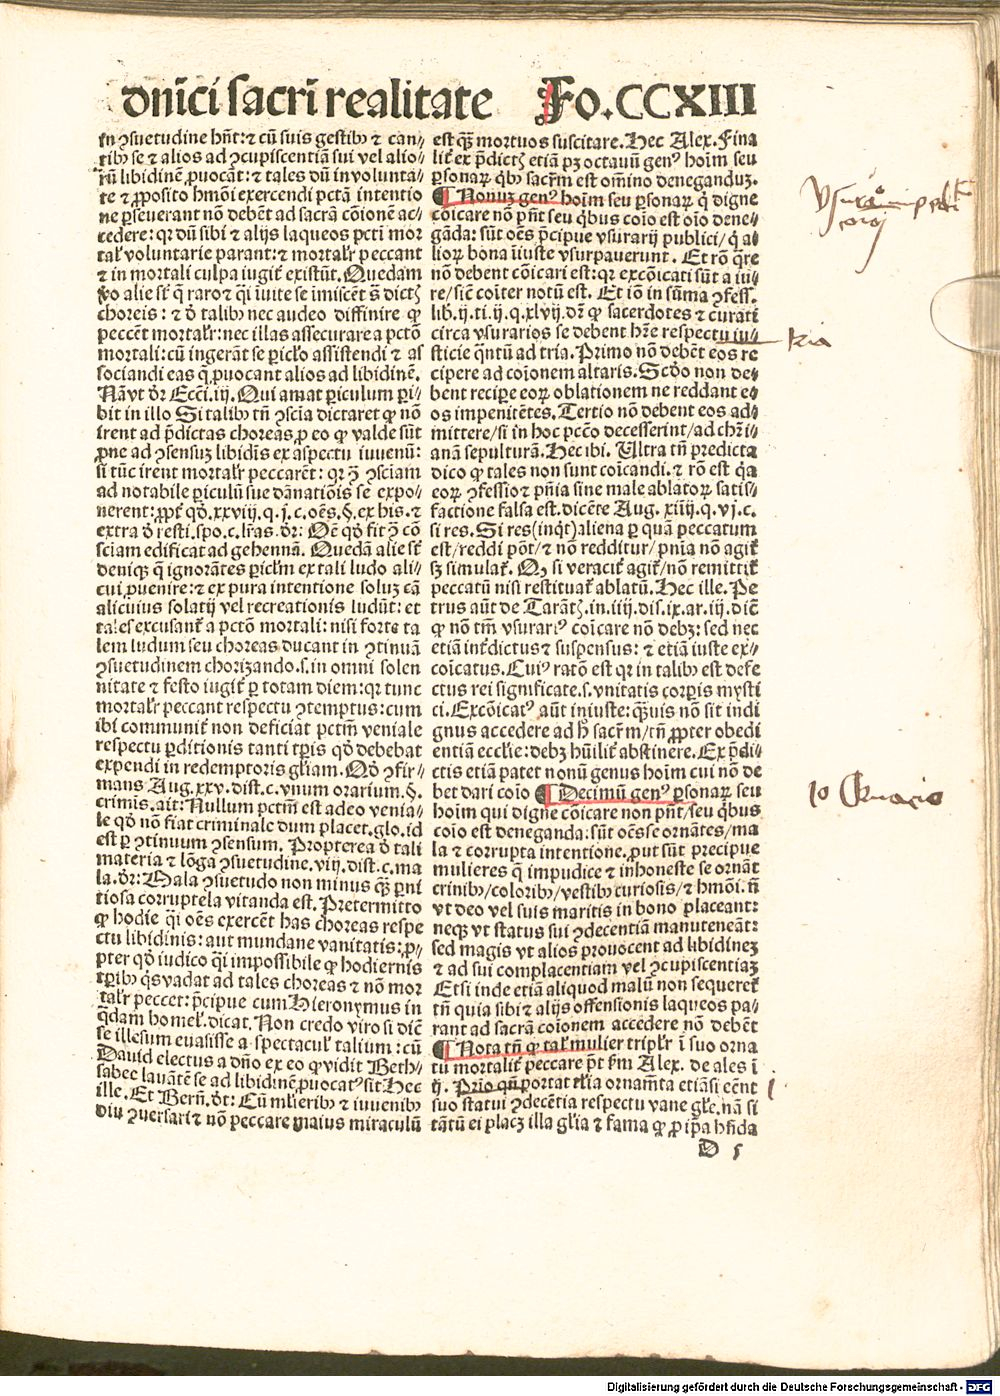 dnĩci sacrĩ realitate Fo.CCXIII
in ꝯsuetudine hñt: ⁊ cũ suis gestibꝰ ⁊ can⸗
tibꝰ se ⁊ alios ad ꝯcupiscentiã sui vel alio⸗
rũ libidinẽ ꝓuocãt: ⁊ tales dũ in volunta⸗
te ⁊ ꝓposito hmõi exercendi pctã intentio
ne ꝑseuerant nõ debẽt ad sacrã cõionẽ ac⸗
cedere: qꝛ dũ sibi ⁊ alijs laqueos pcti mor
tal'r voluntarie parant: ⁊ mortal'r peccant
⁊ in mortali culpa iugit' existũt. Quedam
ꝟo alie sũt q̃ raro ⁊ q̃i iuite se imiscẽt s̃ dictꝭ
choreis: ⁊ ꝺ̃ talibꝰ nec audeo diffinire ꝙ
peccẽt mortal'r: nec illas assecurare a pctõ
mortali: cũ ingerãt se ꝑic'lo assistendi ⁊ as
sociandi eas q̃ ꝓuocant alios ad libidinẽ.
Nã vt ꝺr̃ Ecci.iij. Qui amat ꝑiculum ꝑi⸗
bit in illo Si talibꝰ tñ ꝯscia dictaret ꝙ nõ
irent ad p̃dictas choreas ꝓ eo ꝙ valde sũt
ꝓne ad ꝯsensuꝫ libidĩs ex aspectu iuuenũ:
si tũc irent mortal'r peccarẽt: qꝛ ꝯ̃ ꝯsciam
ad notabile ꝑiculũ sue dãnatiõis se expo⸗
nerent: ꝓpt' qð.xxviij.q.j.c.oẽs.§.ex his.⁊
extra ꝺ̃ resti.spo.c.lr̃as.ꝺr̃: Oẽ qð fit ꝯ̃ cõ
sciam edificat ad gehennã. Quedã alie sũt
deniqꝫ q̃ ignorãtes ꝑic'lm ex tali ludo ali⸗
cui ꝓuenire: ⁊ ex pura intentione soluꝫ cã
alicuius solatij vel recreationis ludũt: et
tales excusant' a pctõ mortali: nisi forte ta
lem ludum seu choreas ducant in ꝯtinuã
ꝯsuetudinem chorizando.s.in omni solen
nitate ⁊ festo iugit' ꝑ totam diem: qꝛ tunc
mortal'r peccant respectu ꝯtemptus: cum
ibi communit' non deficiat pctm̃ veniale
respectu ꝑditionis tanti tꝑis qð debebat
expendi in redemptoris gl'iam. Qð ꝯfir⸗
mans Aug.xxv.dist.c.vnum orarium.§.
crimis.ait: Nullum pctm̃ est adeo venia⸗
le qð nõ fiat criminale dum placet.glo.id
est ꝑ ꝯtinuum ꝯsensum. Propterea ꝺ̃ tali
materia ⁊ lõga ꝯsuetudine.viij.dist.c.ma
la.ꝺr̃: Mala ꝯsuetudo non minus qꝫ ꝑni
tiosa corruptela vitanda est. Pretermitto
ꝙ hodie q̃i oẽs exercẽt has choreas respe
ctu libidinis: aut mundane vanitatis: ꝓ⸗
pter qð iudico q̃i impossibile ꝙ hodiernis
tꝑibꝰ q̃s vadat ad tales choreas ⁊ nõ mor
tal'r peccet: p̃cipue cum Hieronymus in
q̃dam homel'.dicat. Non credo viro si diẽ
se illesum euasisse a spectacul' talium: cũ
Dauid electus a dño ex eo ꝙ vidit Beth⸗
sabec lauãtẽ se ad libidinẽ ꝓuocatꝰ sit Hec
ille. Et Berñ.ꝺt: Cũ ml'ieribꝰ ⁊ iuuenibꝰ
diu ꝯuersari ⁊ nõ peccare maius miraculũ
est qꝫ mortuos suscitare. Hec Alex. Fina
lit' ex p̃dictꝭ etiã pꝫ octauũ genꝰ hoĩm seu
ꝑsonaꝝ qͥbꝰ sacr̃m est oĩno deneganduꝫ.
¶ Nonuꝫ genꝰ hoĩm seu ꝑsonaꝝ q̃ digne
cõicare nõ pñt seu qͥbus cõio est oĩo dene⸗
gãda: sũt oẽs p̃cipue vsurarij publici/ q̃ a⸗
lioꝝ bona iĩuste vsurpauerunt. Et rõ q̃re
nõ debent cõicari est: qꝛ excõicati sũt a iu⸗
re/ sic̃ cõiter notũ est. Et iõ in sũma ꝯfess.
lib.ij.ti.ij.q.xlvij.ꝺr̃ ꝙ sacerdotes ⁊ curati
circa vsurarios se debent hr̃e respectu iu⸗
sticie q̃ntũ ad tria. Primo nõ debẽt eos re
cipere ad cõionem altaris. Scðo non de⸗
bent recipe eoꝝ oblationem ne reddant e⸗
os impenitẽtes. Tertio nõ debent eos ad⸗
mittere/ si in hoc pctõ decesserint/ ad chr̃i⸗
anã sepulturã. Hec ibi. Ultra tñ predicta
dico ꝙ tales non sunt cõicandi. ⁊ rõ est q̃a
eoꝝ ꝯfessio ⁊ pñia sine male ablatoꝝ satis⸗
factione falsa est. dicẽte Aug. xiiij.q.vj.c.
si res. Si res (inq̃t) aliena ꝑ quã peccatum
est/ reddi põt/ ⁊ nõ redditur/ pñia nõ agit'
sꝫ simulat'. Qꝫ si veracit' agit'/ nõ remittit'
peccatũ nisi restituat' ablatũ. Hec ille. Pe
trus aũt de Tarãtꝭ.in.iiij.dis.ix.ar.iij.dic̃
ꝙ nõ tm̃ vsurariꝰ cõicare nõ debꝫ: sed nec
etiã int'dictus ⁊ suspensus: ⁊ etiã iuste ex⸗
cõicatus. Cuiꝰ ratõ est qꝛ in talibꝰ est defe
ctus rei significate.s.vnitatis corꝑis mysti
ci. Excõicatꝰ aũt iniuste: q̃uis nõ sit indi
gnus accedere ad h̃ sacr̃m/ tñ ꝓpter obedi
entiã eccl'ie: debꝫ hũilit' abstinere. Ex p̃di⸗
ctis etiã patet nonũ genus hoĩm cui nõ de
bet dari cõio ¶ Decimũ genꝰ ꝑsonaꝝ seu
hoĩm qui digne cõicare non pñt/ seu qͥbus
cõio est deneganda: sũt oẽs se ornãtes/ ma
la ⁊ corrupta intentione. ꝓut sũt precipue
mulieres q̃ impudice ⁊ inhoneste se ornãt
crinibꝰ/ coloribꝰ/ vestibꝰ curiosis/ ⁊ hmõi. ñ
vt deo vel suis maritis in bono placeant:
neqꝫ vt status sui ꝯdecentiã manuteneãt:
sed magis vt alios prouocent ad libidineꝫ
⁊ ad sui complacentiam vel ꝯcupiscentiaꝫ
Etsi inde etiã aliquod malũ non sequeret'
tñ quia sibi ⁊ alijs offensionis laqueos pa⸗
rant ad sacrã cõionem accedere nõ debẽt
¶ Nota tñ ꝙ tal' mulier tripl'r ĩ suo orna
tu mortalit' peccare põt ẜm Alex. de ales ĩ
ij. Prio qñ portat t'lia ornam̃ta etiãsi cẽnt
suo statui ꝯdecẽtia respectu vane gl'e. nã si
tãtũ ei placꝫ illa gl'ia ⁊ fama ꝙ ꝓ ip̃a hñda
D 5
tria
10 Ornatio
Digitalisierung gefördert durch die Deutsche Forschungsgemeinschaft - DFG